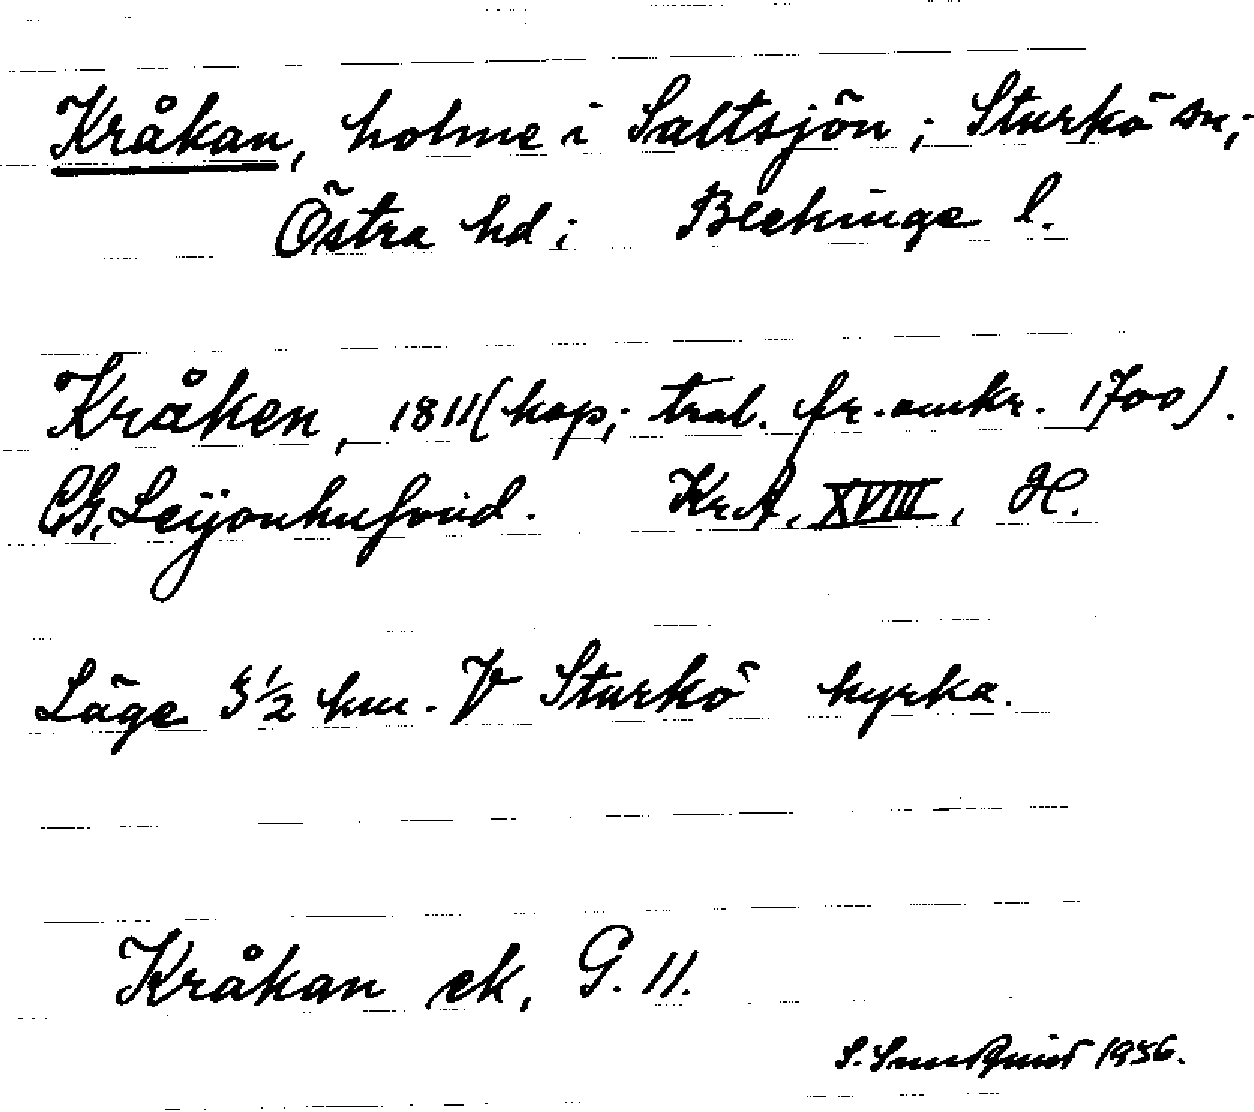 Kråkan, holme i Saltsjön; Sturkö sn;
Östra hd; Blekinge l.
Kråken, 1811 (kop; tral. fr. omkr. 1700).
CG. Leijonhufvud. KrA, XVIII, H.
Läge 3½ km. V Sturkö kyrka.
Kråkan ek, G. 11.
S. Sundquist 1956.